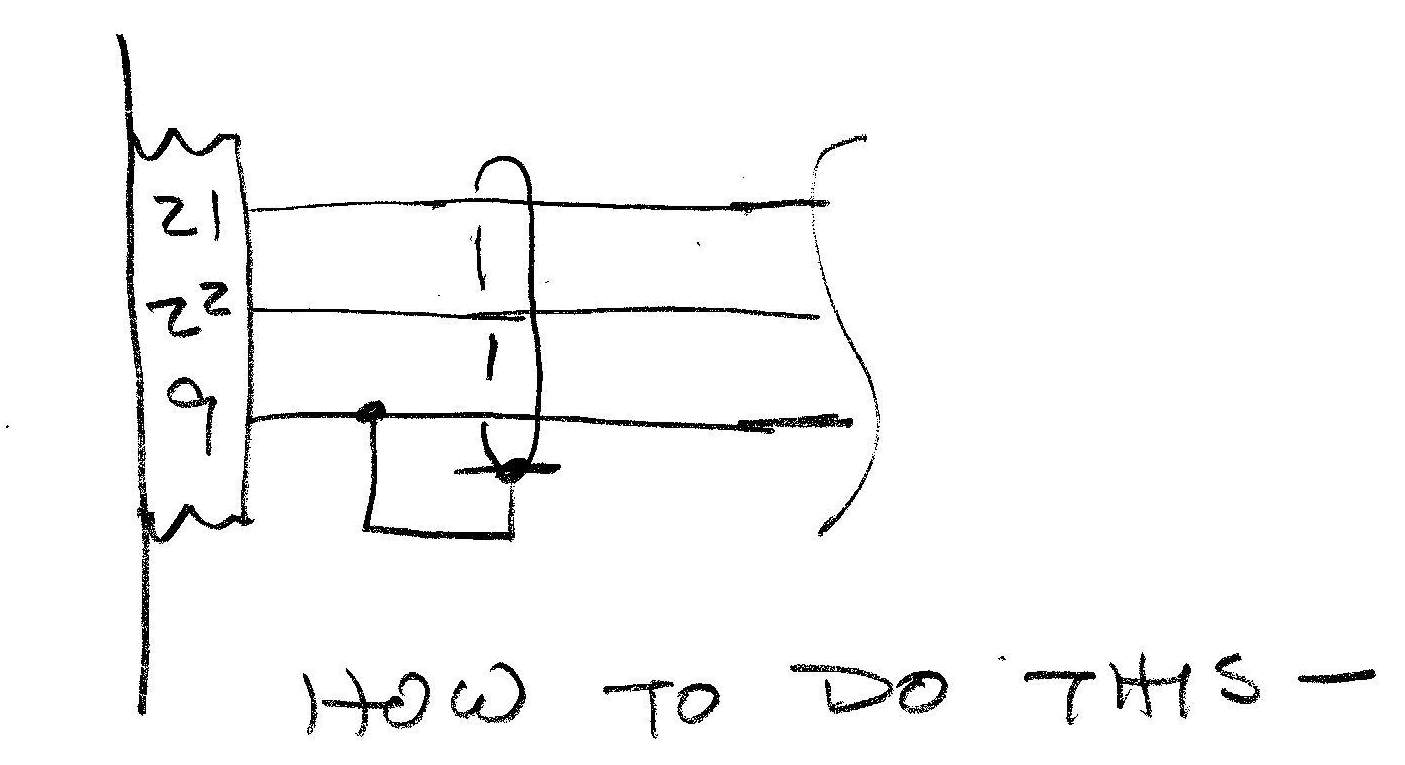 21
22
9
HOW TO DO THIS —